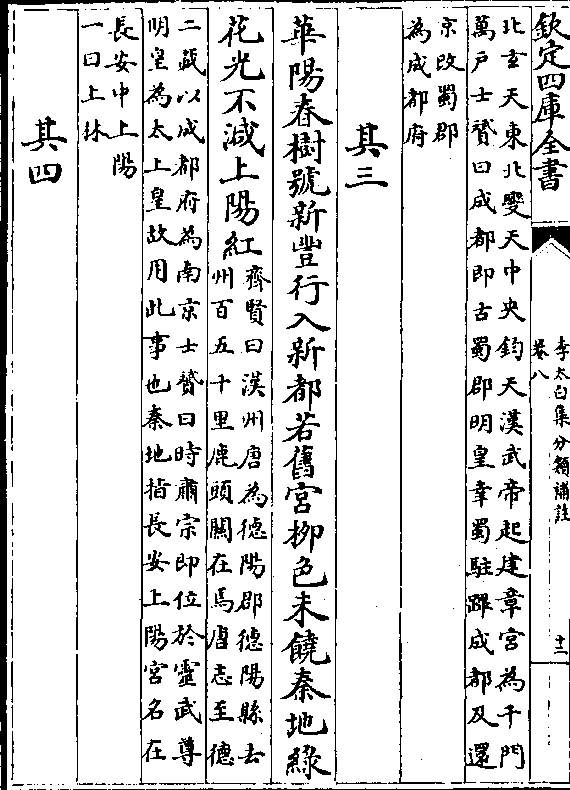 欽定四庫全書
李太白集分類補註
卷八
十二
北玄天東北變天中央鈞天漢武帝起建章宮為千門
萬戶士贇曰成都即古蜀郡明皇幸蜀駐蹕成都及還
京改蜀郡
為成都府
其三
華陽春樹號新豐行入新都若舊宮柳色未饒秦地綠
花光不減上陽紅
齊賢曰漢州唐為德陽郡德陽縣去
州百五十里鹿頭關在焉唐志至德
二載以成都府為南京士贇曰時肅宗即位於靈武尊
明皇為太上皇故用此事也秦地指長安上陽宮名在
長安中上陽
一曰上林
其四